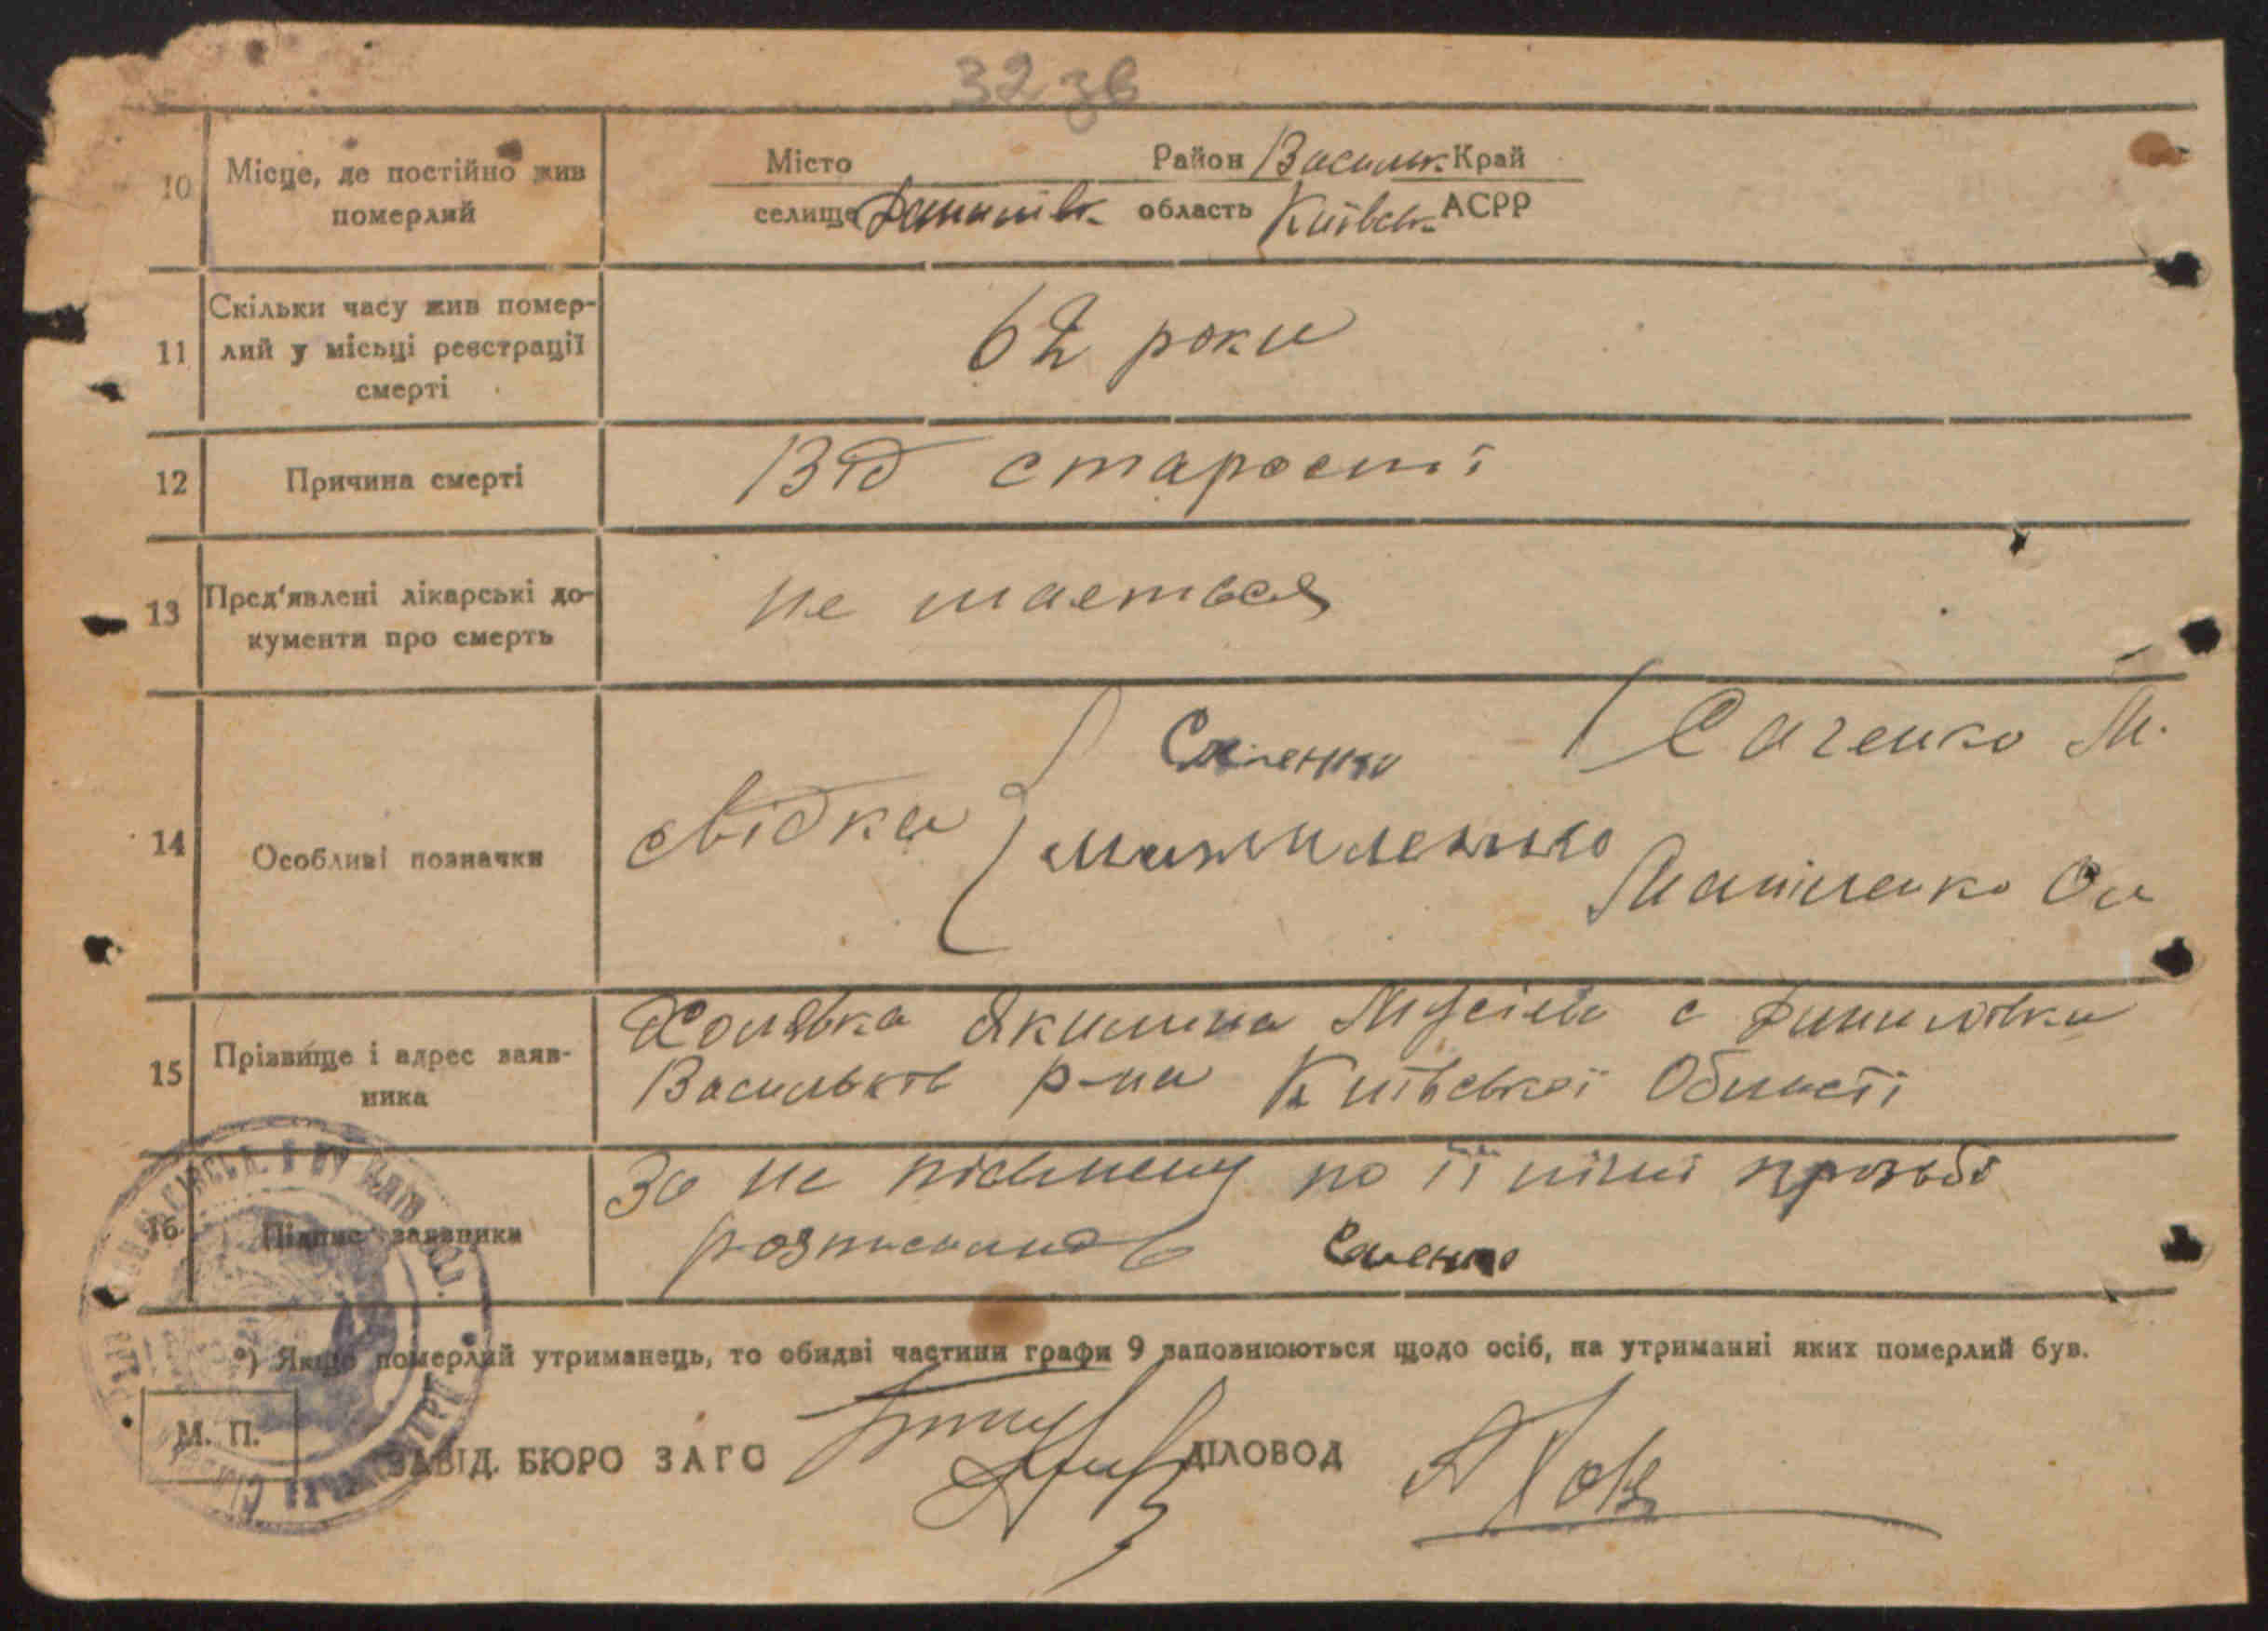 32 зв
10 Місце, де постійно жив померлий
Місто Район Васильк. Край
селище Данилівк. область Київськ. АСРР
11 Скільки часу жив помер-
лий у місьці реєстрації
смерті
62 роки
12 Причина смерті
Від старості
13 Пред'явлені лікарські до-
кументи про смерть
не мається
14 Особливі позначки
свідки
Саченко / Саченко М.
15 Прізвище і адрес заяв-
ника
Холявка Якилина Мусієв. с Данилівки
Васильків р-на Київської Області
16 Підпис заявника
За не письмену по її лічні прозьбі
розписався Саченко
*) Якщо померлий утриманець, то обидві частини графи 9 заповнюються щодо осіб, на утриманні яких померлий був.
М. П.
ЗАВІД. БЮРО ЗАГС ДІЛОВОД